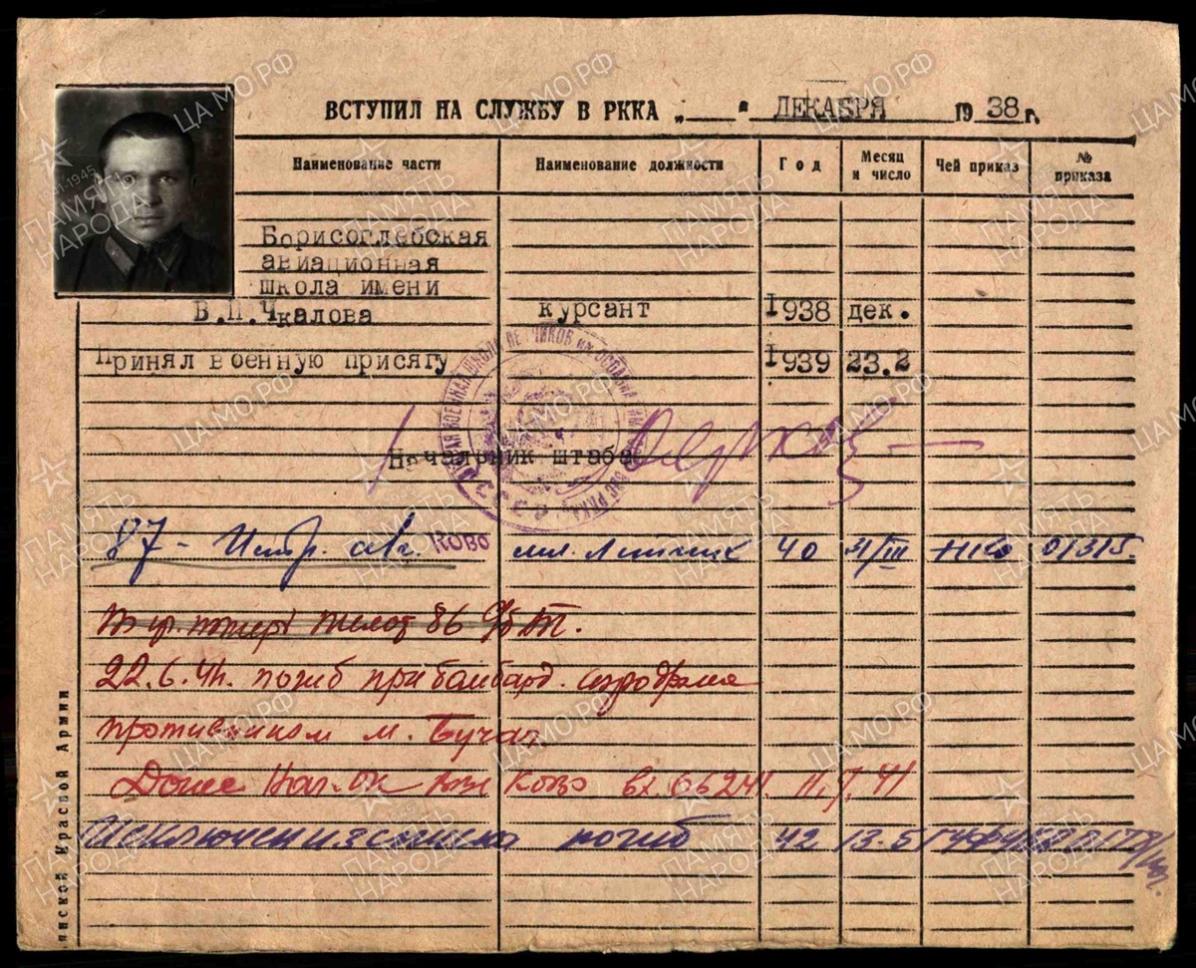 ВСТУПИЛ НА СЛУЖБУ В РККА „ " ДЕКАБРЯ 19 38 г.
Наименование части Наименование должности Год Месяц и число Чей приказ № приказа
Борисоглебская
авиационная
школа имени
В.П.Чкалова курсант 1938 дек.
Принял военную присягу 1939 23.2
Начальник штаба
87 - Истр. ав. КОВО мл. летчик 40 31/III НКО 01315.
пилот 86
22.6.41. погиб при бомбард. аэродрома
противником м. Бучач.
КОВО вх. 06624 41
Исключен из списка погиб 42 13.5
янской Красной Армии
ПАМЯТЬ НАРОДА
ЦА МО РФ